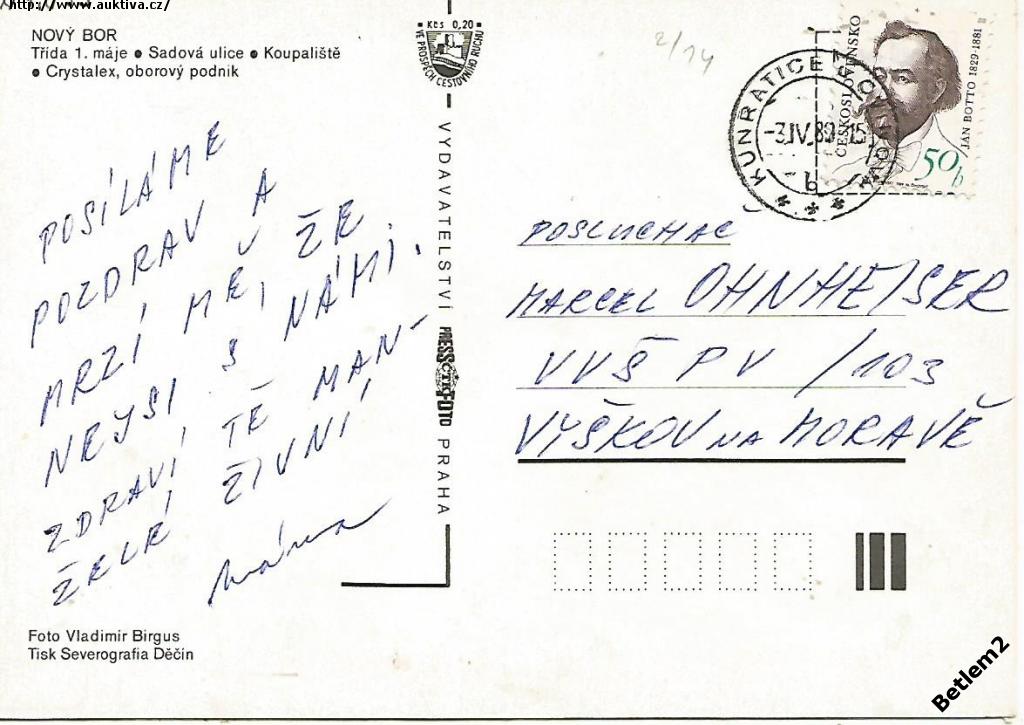 http://www.auktiva.cz/
NOVÝ BOR
Třída 1. máje • Sadová ulice • Koupaliště
• Crystalex, oborový podnik
POSÍLÁME
POZDRAV A
MRZÍ MĚ, ŽE
NEJSI S NÁMI.
ZDRAVÍ TĚ MAN-
ŽELÉ ŽIVNÍ
máma
Foto Vladimír Birgus
Tisk Severografia Děčín
Kčs 0,20
VE PROSPĚCH CESTOVNÍHO RUCHU
VYDAVATELSTVÍ PRESSFOTO PRAHA
ČTK
2/14
KUNRATICE
-3.IV.89-15
b
ČESKOSLOVENSKO
JÁN BOTTO 1829-1881
50h
POSLUCHAČ
MARCEL OHNHEISER
VVŠ PV /103
VYŠKOV NA MORAVĚ
Betlem2